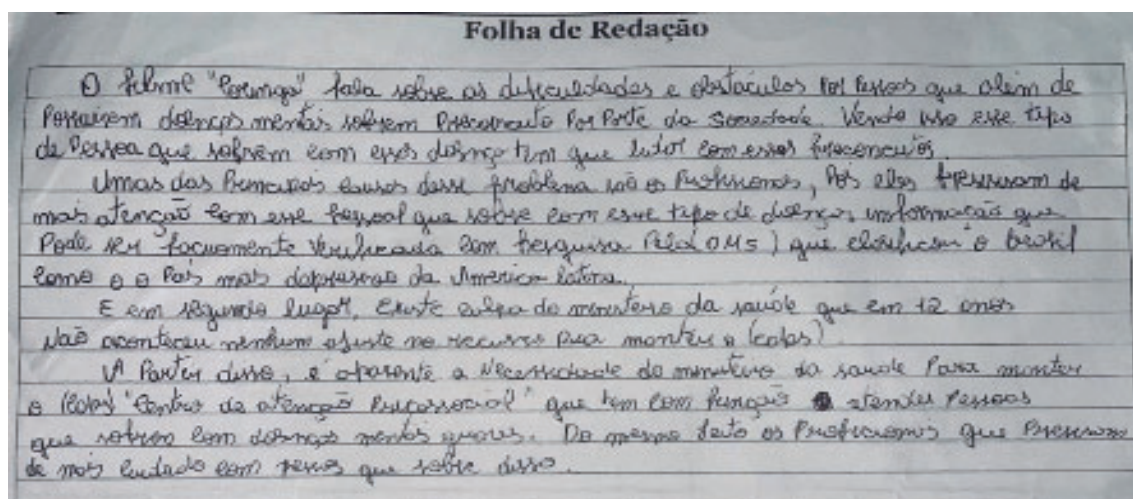 Folha de Redação
O filme "Coringa" fala sobre as dificuldades e obstáculos por pessoas que além de
possuirem doenças mentais sofrem preconceito por parte da sociedade. Vendo isso esse tipo
de pessoa que sofrem com essas doença tem que lutar com esses preconceitos.
Umas das principais causas desse problema são os profissionais, pois eles precisam de
mais atenção com esse pessoal que sofre com esse tipo de doença, informação que
pode ser facilmente verificada com pesquisa pela OMS) que classificam o brasil
como o o país mais depressivo da America latina.
E em segundo lugar, existe culpa do ministerio da saúde que em 12 anos
não aconteceu nenhum ajuste no recurso pra manter o (caps).
A partir disso, é aparente a necessidade do ministerio da saude para manter
o (caps) "Centro de atenção psicossocial" que tem com função atender pessoas
que sofrem com doenças mentais graves. Do mesmo jeito os profissionais que precisam
de mais cuidado com pessoas que sofre disso.